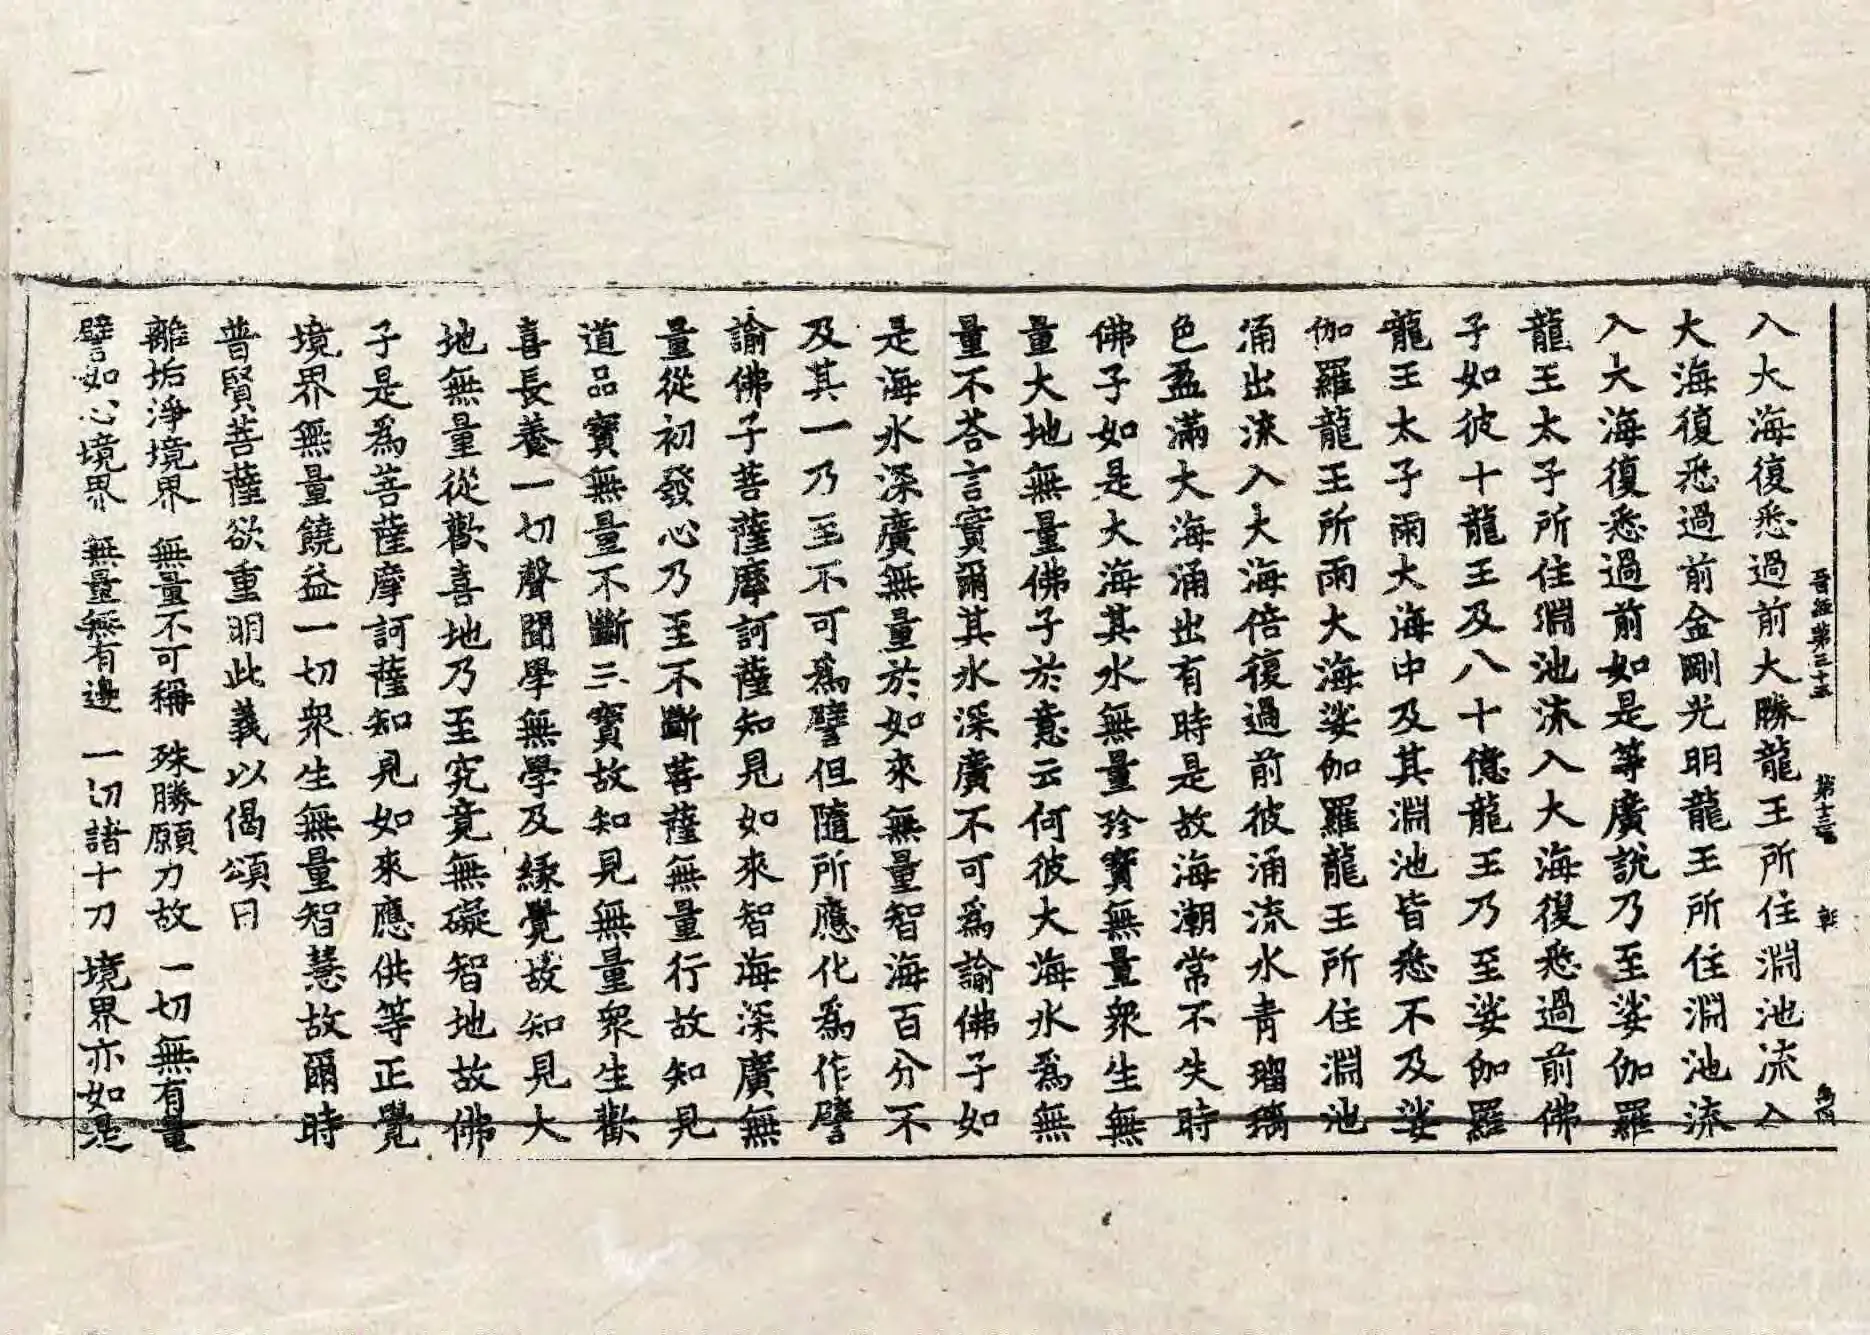 晋經第三十五 第十三 彰
入大海復悉過前大勝龍王所住淵池流入
大海復悉過前金剛光明龍王所住淵池流
入大海復悉過前如是等廣說乃至娑伽羅
龍王太子所住淵池流入大海復悉過前佛
子如彼十龍王及八十億龍王乃至娑伽羅
龍王太子雨大海中及其淵池皆悉不及娑
伽羅龍王所雨大海娑伽羅龍王所住淵池
涌出流入大海倍復過前彼涌流水青瑠璃
色盈滿大海涌出有時是故海潮常不失時
佛子如是大海其水無量珍寶無量眾生無
量大地無量佛子於意云何彼大海水為無
量不荅言實爾其水深廣不可為諭佛子如
是海水深廣無量於如來無量智海百分不
及其一乃至不可為譬但隨所應化為作譬
諭佛子菩薩摩訶薩知見如來智海深廣無
量從初發心乃至不斷菩薩無量行故知見
道品寶無量不斷三寶故知見無量眾生歡
喜長養一切聲聞學無學及緣覺故知見大
地無量從歡喜地乃至究竟無礙智地故佛
子是為菩薩摩訶薩知見如來應供等正覺
境界無量饒益一切眾生無量智慧故爾時
普賢菩薩欲重明此義以偈頌曰
離垢淨境界 無量不可稱 殊勝願力故 一切無有量
譬如心境界 無量無有邊 一切諸十力 境界亦如是